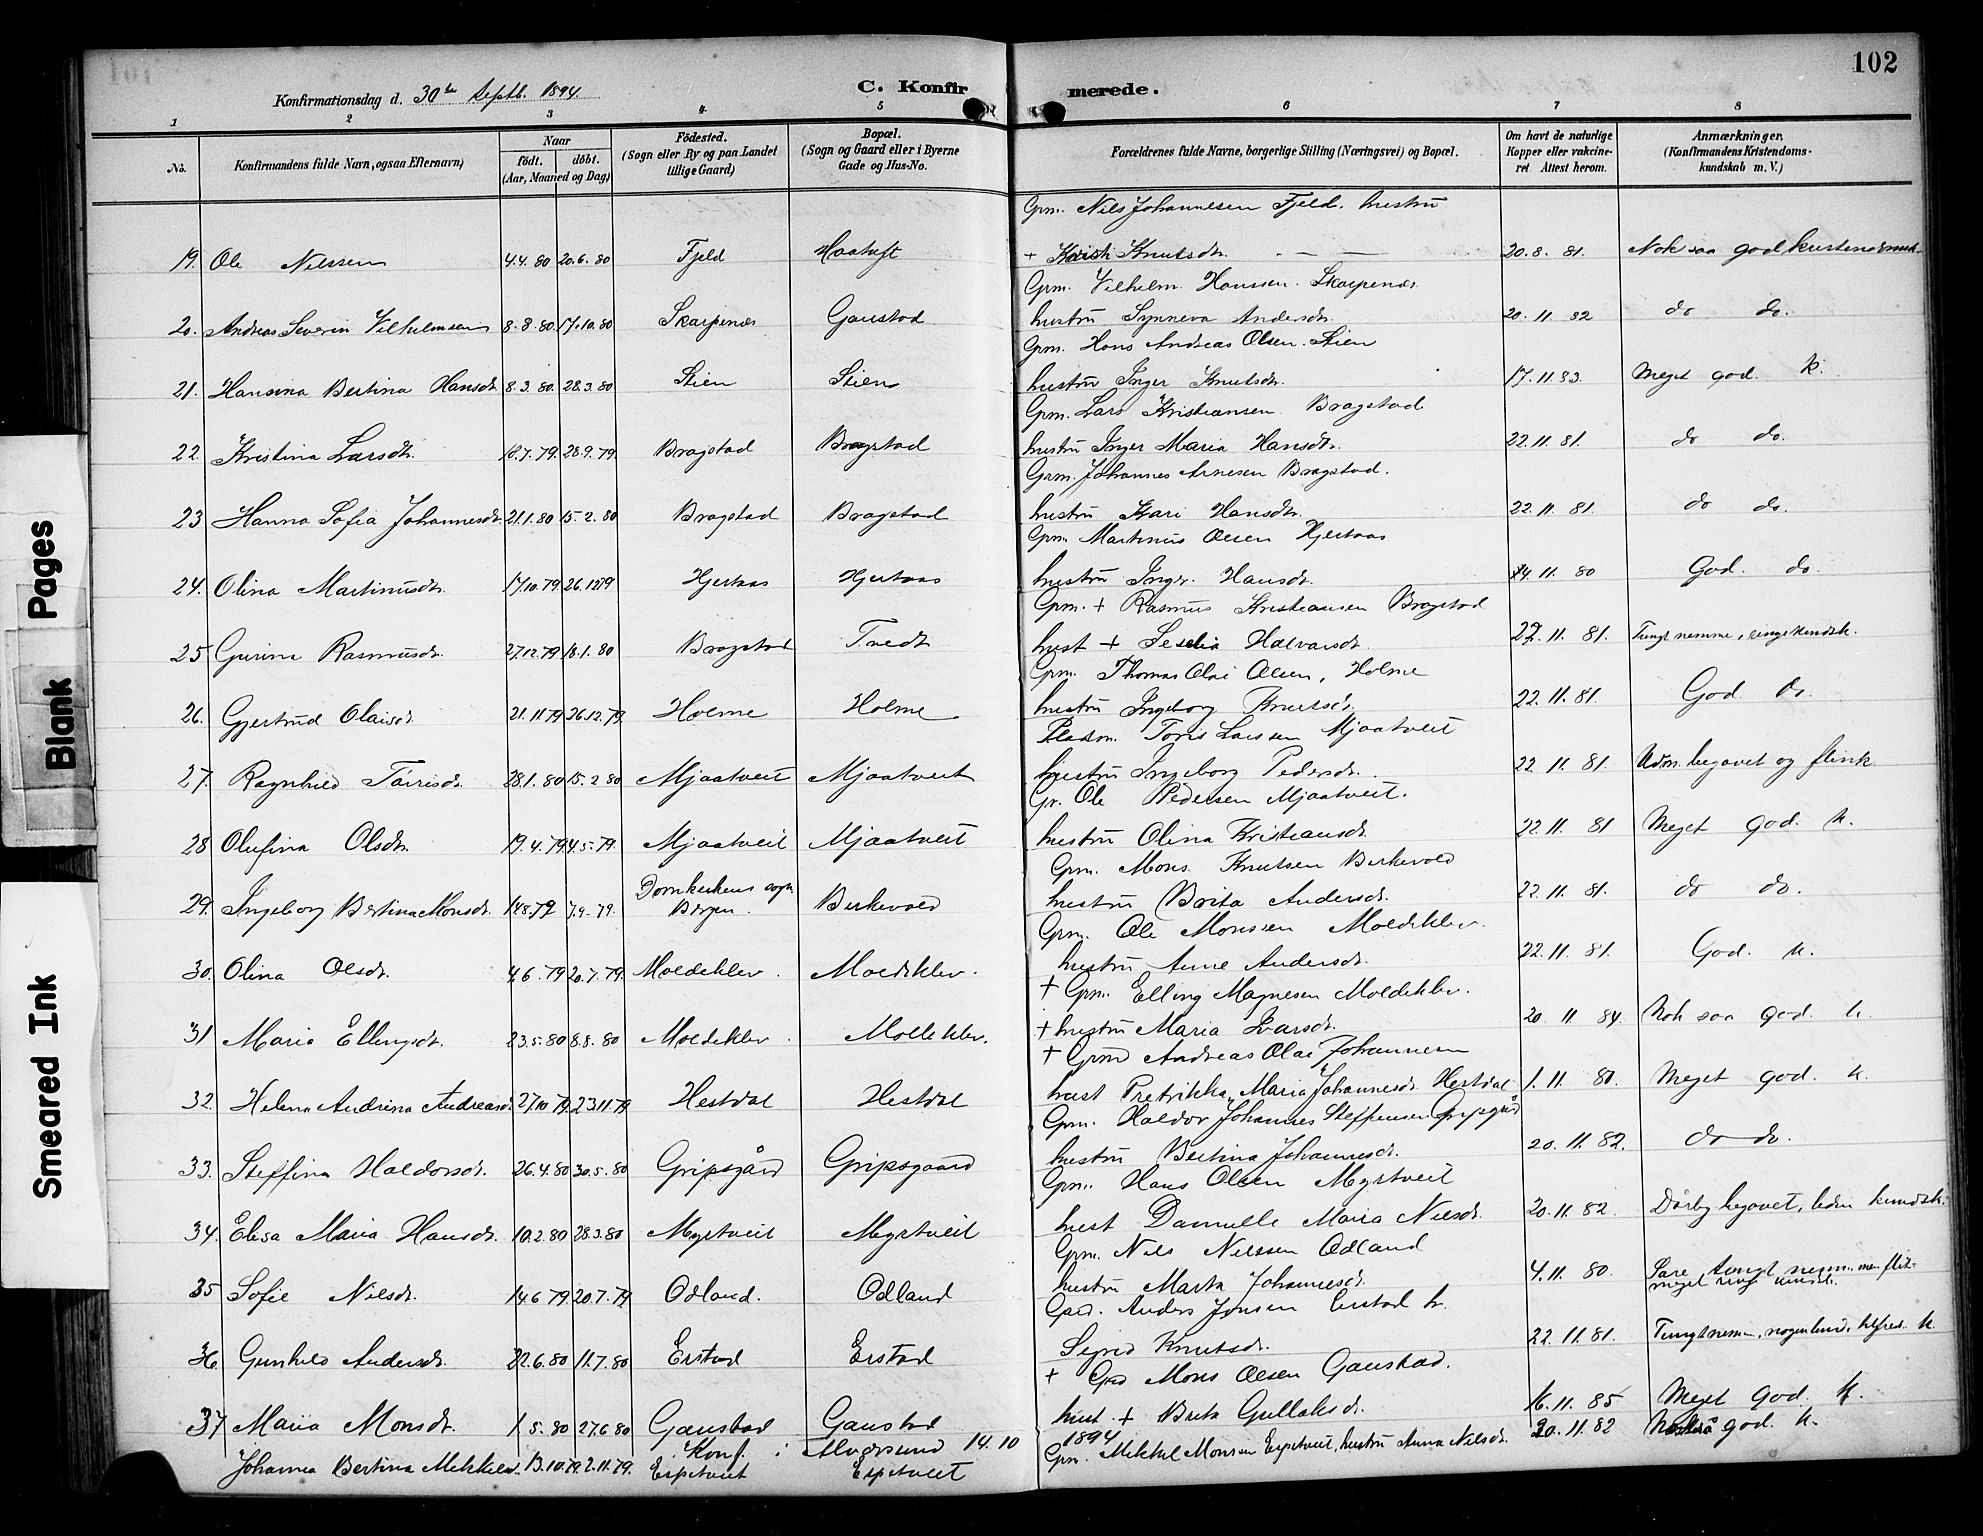 102
Konfirmationsdag d. 30te Septb. 1894.
C. Konfirmerede.
1 2 3 4 5 6 7 8
No. Konfirmandens fulde Navn, ogsaa Efternavn) Naar födt. döbt. (Aar, Maaned og Dag) Födested. (Sogn eller By og paa Landet tillige Gaard) Bopæl. (Sogn og Gaard eller i Byerne Gade og Hus-No. Forældrenes fulde Navne, borgerlige Stilling (Næringsvei) og Bopæl. Om havt de naturlige Kopper eller vakcineret Attest herom. Anmærkninger. (Konfirmandens Kristendomskundskab m. V.)
Gpm. Nils Johannesen Fjeld. hustru
19. Ole Nilssen 4.4.80 20.6.80 Fjeld Haatuft + Kristi Knutsdtr. — — 20.8.81. Nok saa god kristendomsk.
Gpm. Vilhelm Hanssen. Skarpenes
20. Andreas Severin Vilhelmsen 8.8.80 17.10.80 Skarpenes Gaustad hustru Synneva Andersdr. 20.11.82 do do.
Gpm. Hans Andreas Olsen. Stien
21. Hansina Bertina Hansdtr. 8.3.80 28.3.80 Stien Stien hustru Inger Knutsdtr. 17.11.83. Meget god. k.
Gpm. Lars Kristiansen Bragstad
22. Kristina Larsdtr. 18.7.79. 28.9.79 Bragstad Bragstad hustru Inger Maria Hansdtr. 22.11.81. do do.
Gpm. Johannes Arnesen Bragstad.
23 Hanna Sofia Johannesdtr. 21.1.80 15.2.80 Bragstad Bragstad hustru Kari Hansdtr. 22.11.81. do do.
Gpm. Martinus Olsen Hjertaas
24. Olina Martinusdtr. 17.10.79 26.12.79 Hjertaas Hjertaas hustru Inger. Hansdtr. 14.11.80 God. do.
Gpm. + Rasmus Kristiansen Bragstad
25 Gurina Rasmusdtr. 27.12.79 18.1.80 Bragstad Tvedt hust + Seselia Halvarsdr. 22.11.81. Tungt nemme, ringe kundsk.
Gpm. Thomas Olai Olsen, Holme
26. Gjertrud Olaisdr. 21.11.79 26.12.79. Holme Holme hustru Ingeborg Knutsdr. 22.11.81. God do.
Pladsm. Toris Larssen Mjaatveit
27. Ragnhild Tørrisdr. 28.1.80 15.2.80 Mjaatveit Mjaatveit hustru Ingeborg Pedersdr. 22.11.81. Udm. begavet og flink.
Gr. Ole Pedersen Mjaatveit.
28 Olufina Olsdtr. 19.4.79 4.5.79. Mjaatveit Mjaatveit hustru Olina Kristiansdr. 22.11.81 Meget god. k.
Gpm. Mons Knutsen Birkevold
29. Ingeborg Bertina Monsdr. 14.8.79 7.9.79. Domkirkens sogn Bergen. Birkevold hustru Brita Andersdr. 22.11.81. do do.
Gpm. Ole Monssen Moldeklev.
30. Olina Olsdr. 4.6.79 20.7.79. Moldeklev. Moldeklev. hustru Anne Andersdr. 22.11.81. God. k.
+ Gpm. Elling Magnesen Moldeklev.
31 Maria Ellingsdtr. 23.5.80 8.8.80 Moldeklev. Moldeklev. + hustru Maria Larsdr. 20.11.84. Nok saa god. k.
+ Grmd Andreas Olai Johannesen
32. Helena Andrina Andreasdr. 27.10.79 23.11.79 Hestdal Hestdal hust Fredrikke Maria Johannesdr. Hestdal 1.11.81. Meget god. k.
Gpm. Haldor Johannes Steffensen Gripsgård
33. Steffina Haldorsdr. 26.4.80 30.5.80 Gripsgård Gripsgaard hustru Bertina Johannesdr. 20.11.82. do do.
Gpm. Hans Olsen Myrtveit
34. Elisa Maria Hansdr. 10.2.80 28.3.80 Myrtveit Myrtveit hust Danielle Maria Nilsdr. 20.11.82. Dårlig begavet, liden kundsk.
Gpm. Nils Nilssen Odland
35 Sofie Nilsdr. 14.6.79 20.7.79 Odland. Odland hustru Marta Johannesdr. 4.11.80. Sare tungt nem. men flit. meget svag kundsk.
Gård. Anders Jonsen Erstad h.
36. Gunhild Andersdr. 22.6.80 11.7.80 Erstad Erstad Sigrid Knutsdr. 22.11.81. Tungt nemm,
+ Grd Mons Olsen Gaustad.
37 Maria Monsdr. 1.5.80 27.6.80 Gaustad Gaustad hust. + Brita Gullaksdr. 16.11.85 Meget god. k.
Konf. i Alversund 14.10 1894
Johanna Bertina Mikkelsdr. 13.10.79. 2.11.79. Espetveit Espetveit Gpm. Mikkel Monsen Espetveit, hustru Anna Nilsdr. 20.11.82 Nokså god. k.
Blank Pages
Smeared Ink